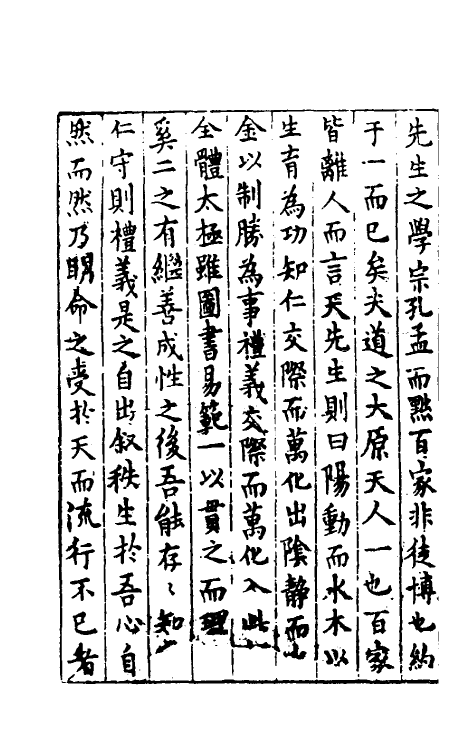 先生之學宗孔孟而黙百家非徒博也約
于一而已矣夫道之大原天人一也百家
皆離人而言天先生則曰陽動而水木以
生育為功知仁交際而萬化出陰靜而
金以制勝為事禮義交際而萬化入此
全體太極雖圖書易範一以貫之而理
奚二之有繼善成性之後吾能存〻知
仁守則禮義是之自出叙秩生於吾心自
然而然乃明命之受於天而流行不已者